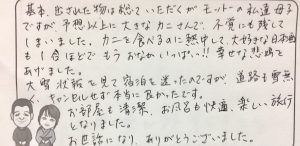 基本、出された物は総ていただくがモットーの私達母子
ですが予想以上に大きなカニさんで、不覚にも残して
しまいました。カニを食べるのに熱中して、大好きな日本酒
も1合ほどでもうおなかいっぱい!!幸せな悲鳴を
あげました。
大雪状報を見て宿泊を迷ったのですが、道路も雪無
く、キャンセルせず本当に良かったです。
お部屋も清潔、お風呂も快適、楽しい旅行
となりました。
お世話になり、ありがとうございました。